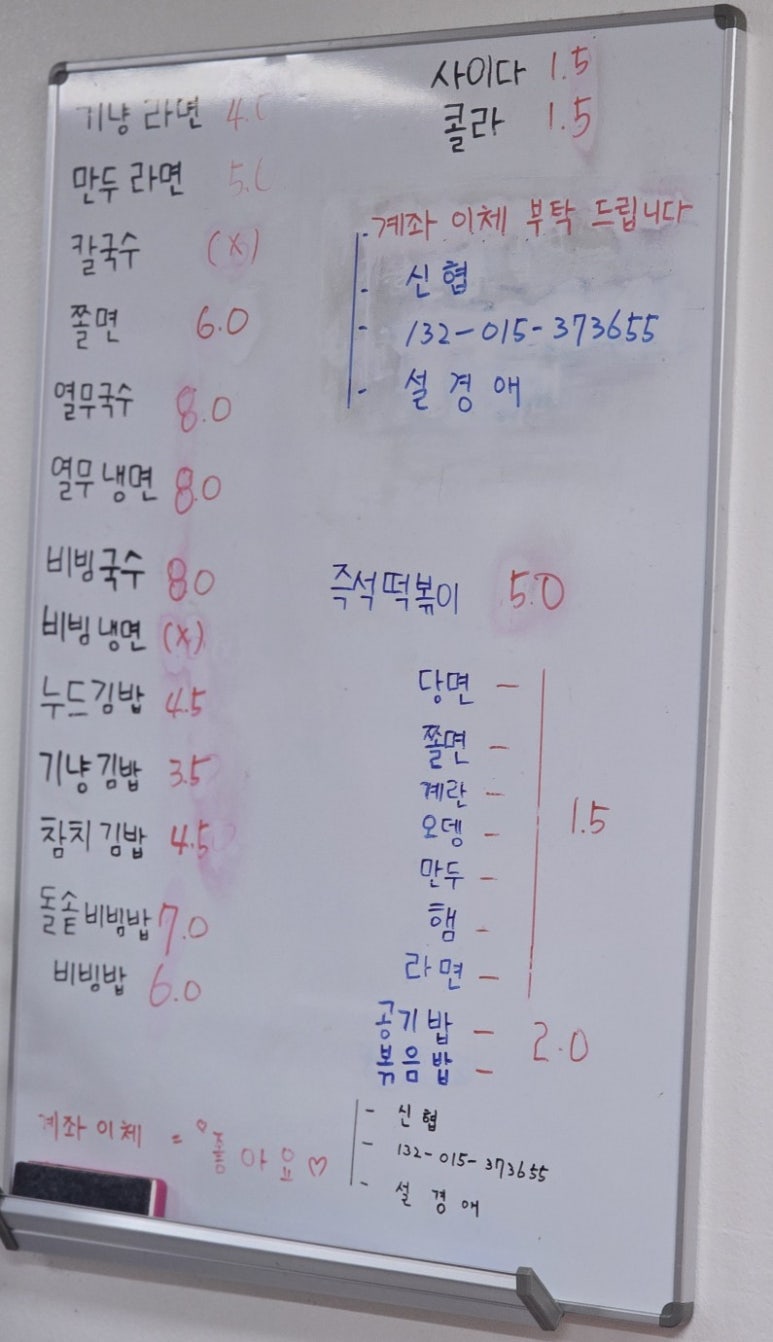 기냥 라면 4.0
만두 라면 5.0
칼국수 (x)
쫄면 6.0
열무국수 8.0
열무 냉면 8.0
비빙국수 8.0
비빙냉면 (x)
누드김밥 4.5
기냥김밥 3.5
참치김밥 4.5
돌솥비빔밥 7.0
비빙밥 6.0
사이다 1.5
콜라 1.5
- 계좌 이체 부탁 드립니다
- 신협
- 132-015-373655
- 설경애
즉석떡볶이 5.0
당면 -
쫄면 -
계란 -
오뎅 - 1.5
만두 -
햄 -
라면 -
공기밥 - 2.0
볶음밥 -
계좌 이체 = 좋아요♡
- 신협
- 132-015-373655
- 설경애